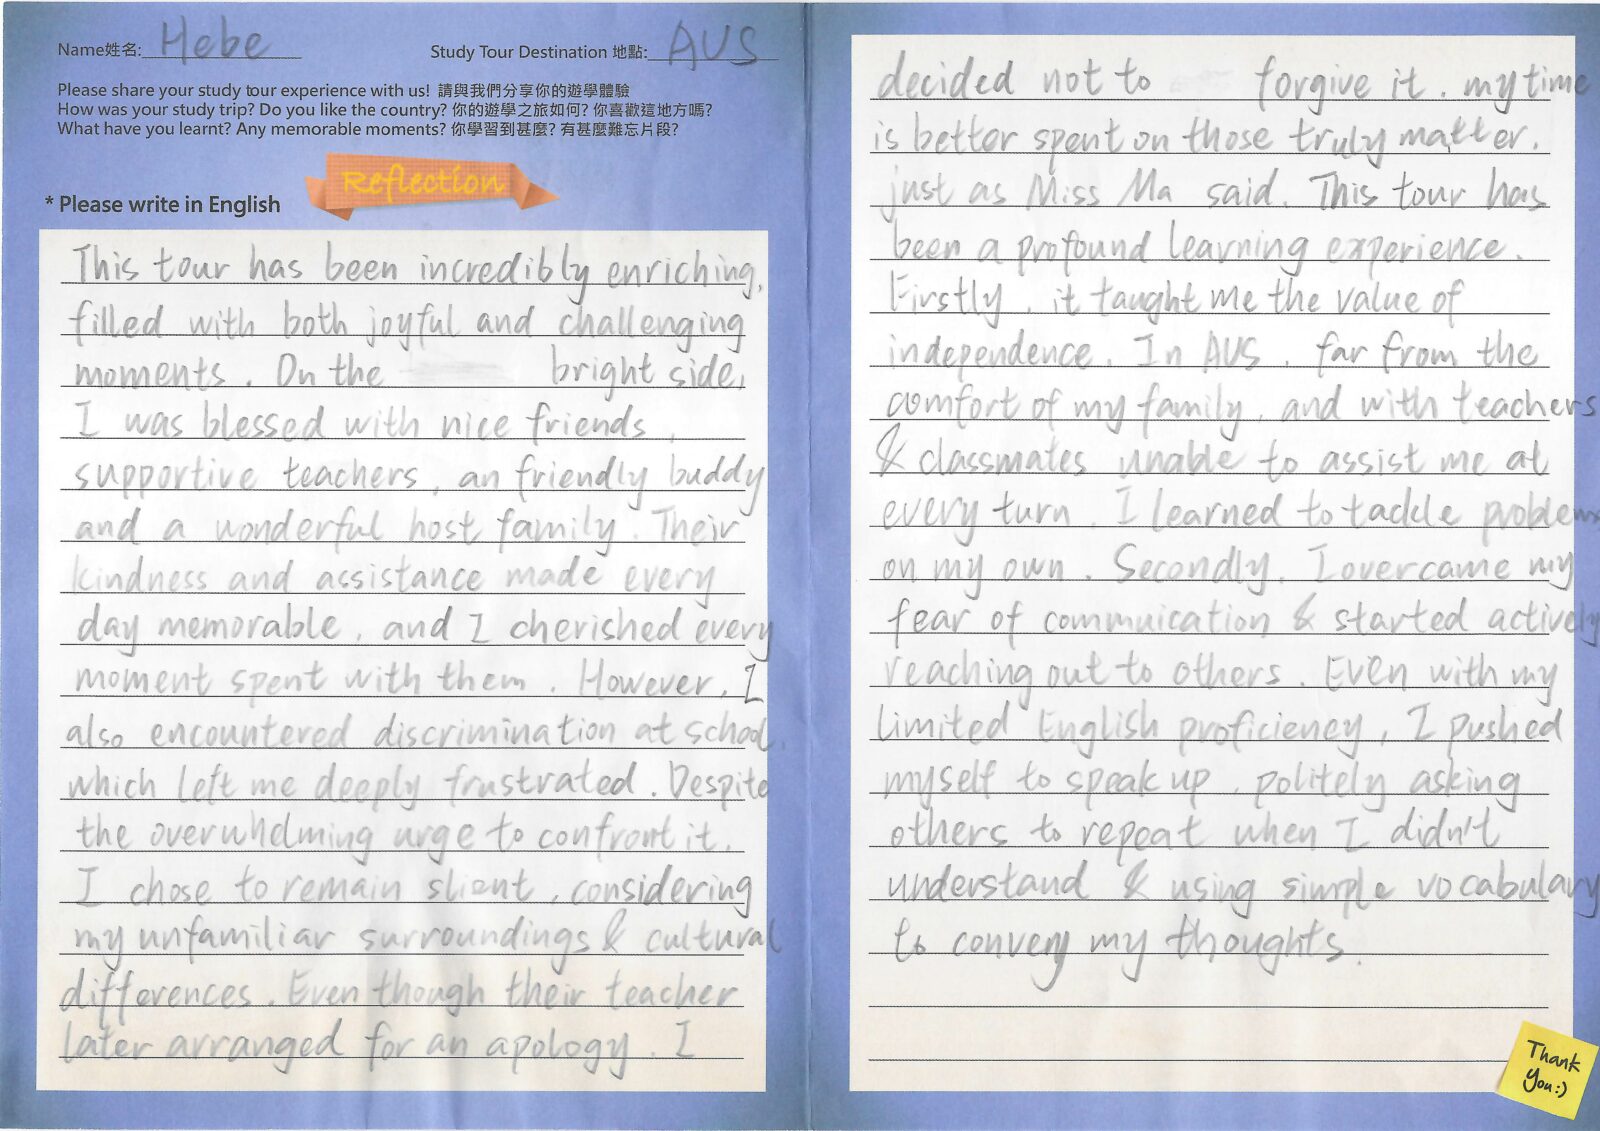 Name姓名: Hebe
Study Tour Destination 地點: AUS
Please share your study tour experience with us! 請與我們分享你的遊學體驗
How was your study trip? Do you like the country? 你的遊學之旅如何? 你喜歡這地方嗎?
What have you learnt? Any memorable moments? 你學習到甚麼? 有甚麼難忘片段?
Reflection
* Please write in English
This tour has been incredibly enriching,
filled with both joyful and challenging
moments. On the bright side,
I was blessed with nice friends,
supportive teachers, an friendly buddy
and a wonderful host family. Their
kindness and assistance made every
day memorable, and I cherished every
moment spent with them. However, I
also encountered discrimination at school,
which left me deeply frustrated. Despite
the overwhelming urge to confront it,
I chose to remain slient, considering
my unfamiliar surroundings & cultural
differences. Even though their teacher
later arranged for an apology, I
decided not to forgive it. my time
is better spent on those truly matter,
just as Miss Ma said. This tour has
been a profound learning experience.
Firstly, it taught me the value of
independence. In AUS, far from the
comfort of my family, and with teachers
& classmates unable to assist me at
every turn, I learned to tackle problems
on my own. Secondly, I overcame my
fear of commuication & started actively
reaching out to others. Even with my
limited English proficiency, I pushed
myself to speak up, politely asking
others to repeat when I didn't
understand & using simple vocabulary
to convery my thoughts.
Thank
You:)